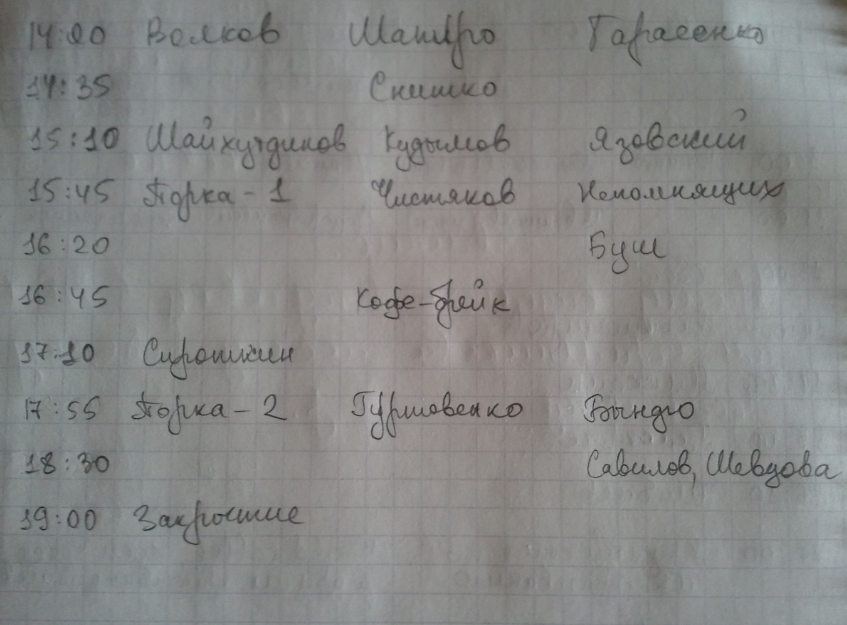 14:00 Волков Шапиро Тарасенко
14:35 Снишко
15:10 Шайхутдинов Кудымов Язовский
15:45 Порка-1 Чистяков Непомнящих
16:20 Буш
16:45 Кофе-брейк
17:10 Сиромкин
17:55 Порка-2 Гурновенко Бындю
18:30 Савилов, Шевцова
19:00 Закрытие